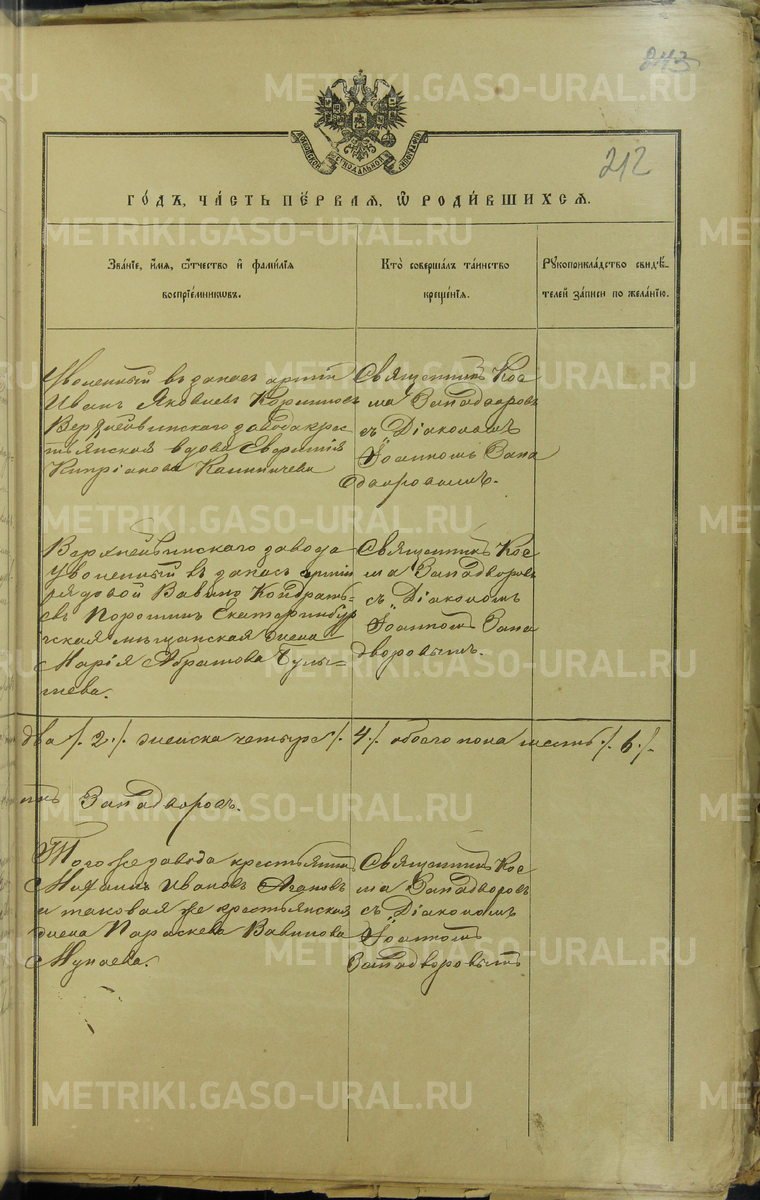 243
212
ГО́ДЪ, ЧА́СТЬ ПЕ́РВАЯ, Ѡ҆ РОДИ́ВШИХСЯ.
Зва́нїе, и҆́мя, ѻ҆́тчество и҆ фами́лїя
воспрїе́мниковъ.
Кто̀ соверша́лъ та́инство
креще́нїя.
Рꙋкоприкла́дство свидѣ́-
телей за́писи по жела́нїю.
Уволенный въ запасъ арміи
Иванъ Яковлевъ
Верхнейвинскаго завода крес
тьянская вдова Евфимія
Кипріанова Калиничева
Священникъ Кос
ма Западворовъ
съ Діакономъ
Іоанномъ Запа
дворовымъ.
Верхнейвинскаго завода
Уволенный въ запасъ арміи
рядовой Вавило Кондрать-
евъ Порошинъ Екатеринбур
гская мѣщанская жена
Марія Абрамова Булы-
чева.
Священникъ Кос
ма Западворовъ
съ Діакономъ
Іоанномъ Запа
дворовымъ.
два /. 2 ./. женска четыре /. 4 ./. обоего пола шесть ./. 6 ./.
Западворовъ.
Того же завода крестьянинъ
Михаилъ Ивановъ
и таковая же крестьянская
жена Параскева Вавилова
Священникъ Кос
ма Западворовъ
съ Діакономъ
Іоанномъ
Западворовымъ
METRIKI.GASO-URAL.RU